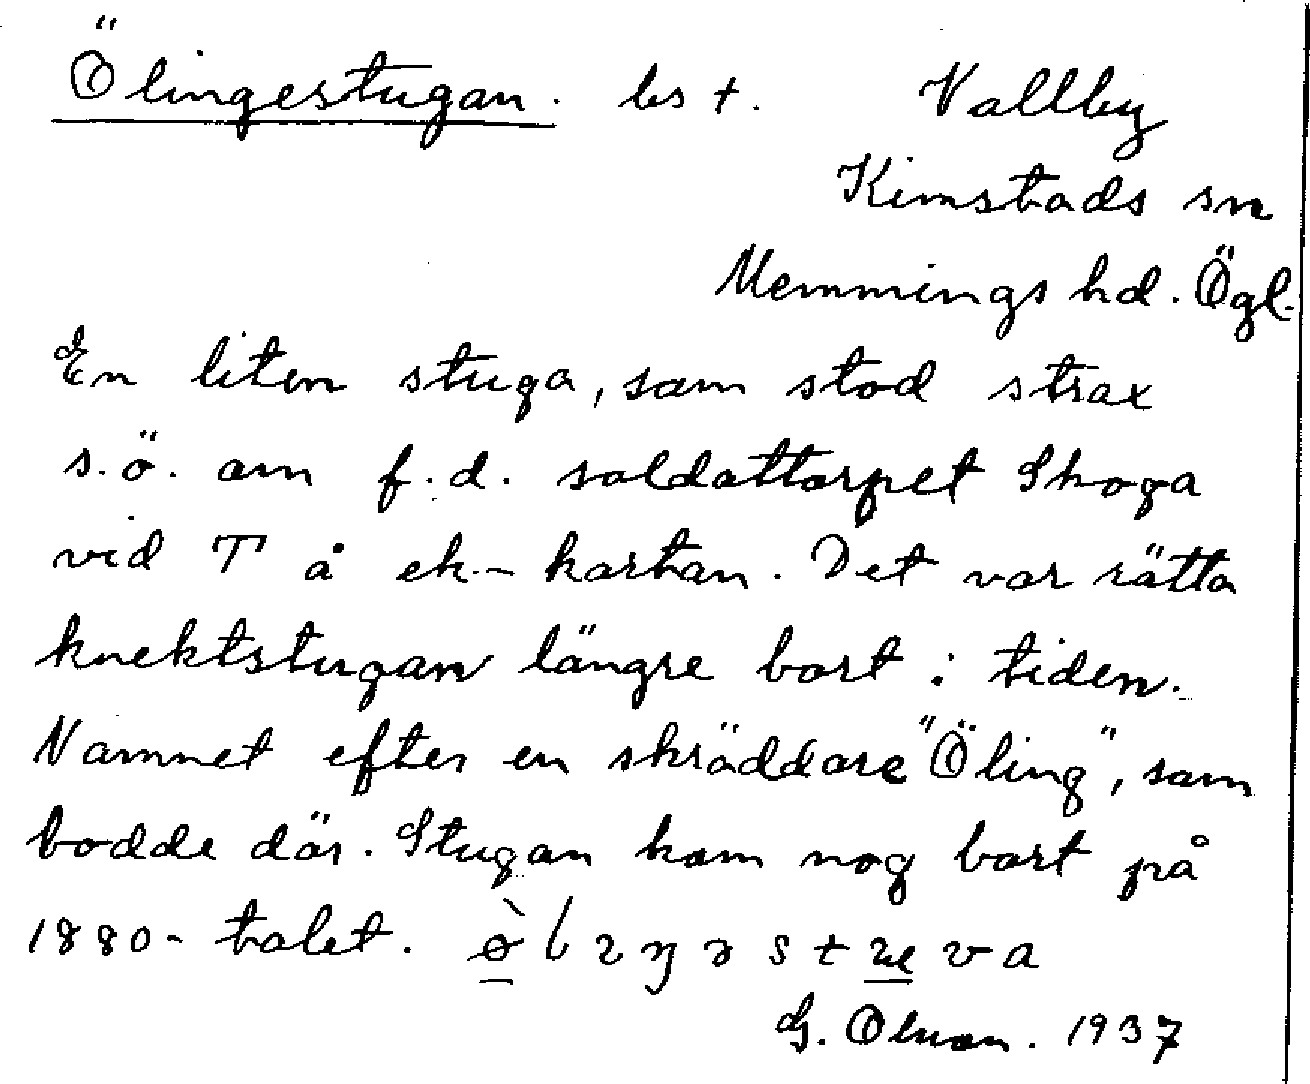 Ölingestugan. bst. Vallby
Kimstads sn
Memmings hd. Ögl.
En liten stuga, som stod strax
s.ö. om f.d. soldattorpet Skoga
vid T å ek-kartan. Det var rätta
knektstugan längre bort i tiden.
Namnet efter en skräddare "Öling", som
bodde där. Stugan kom nog bort på
1880-talet.
G. Olson. 1937